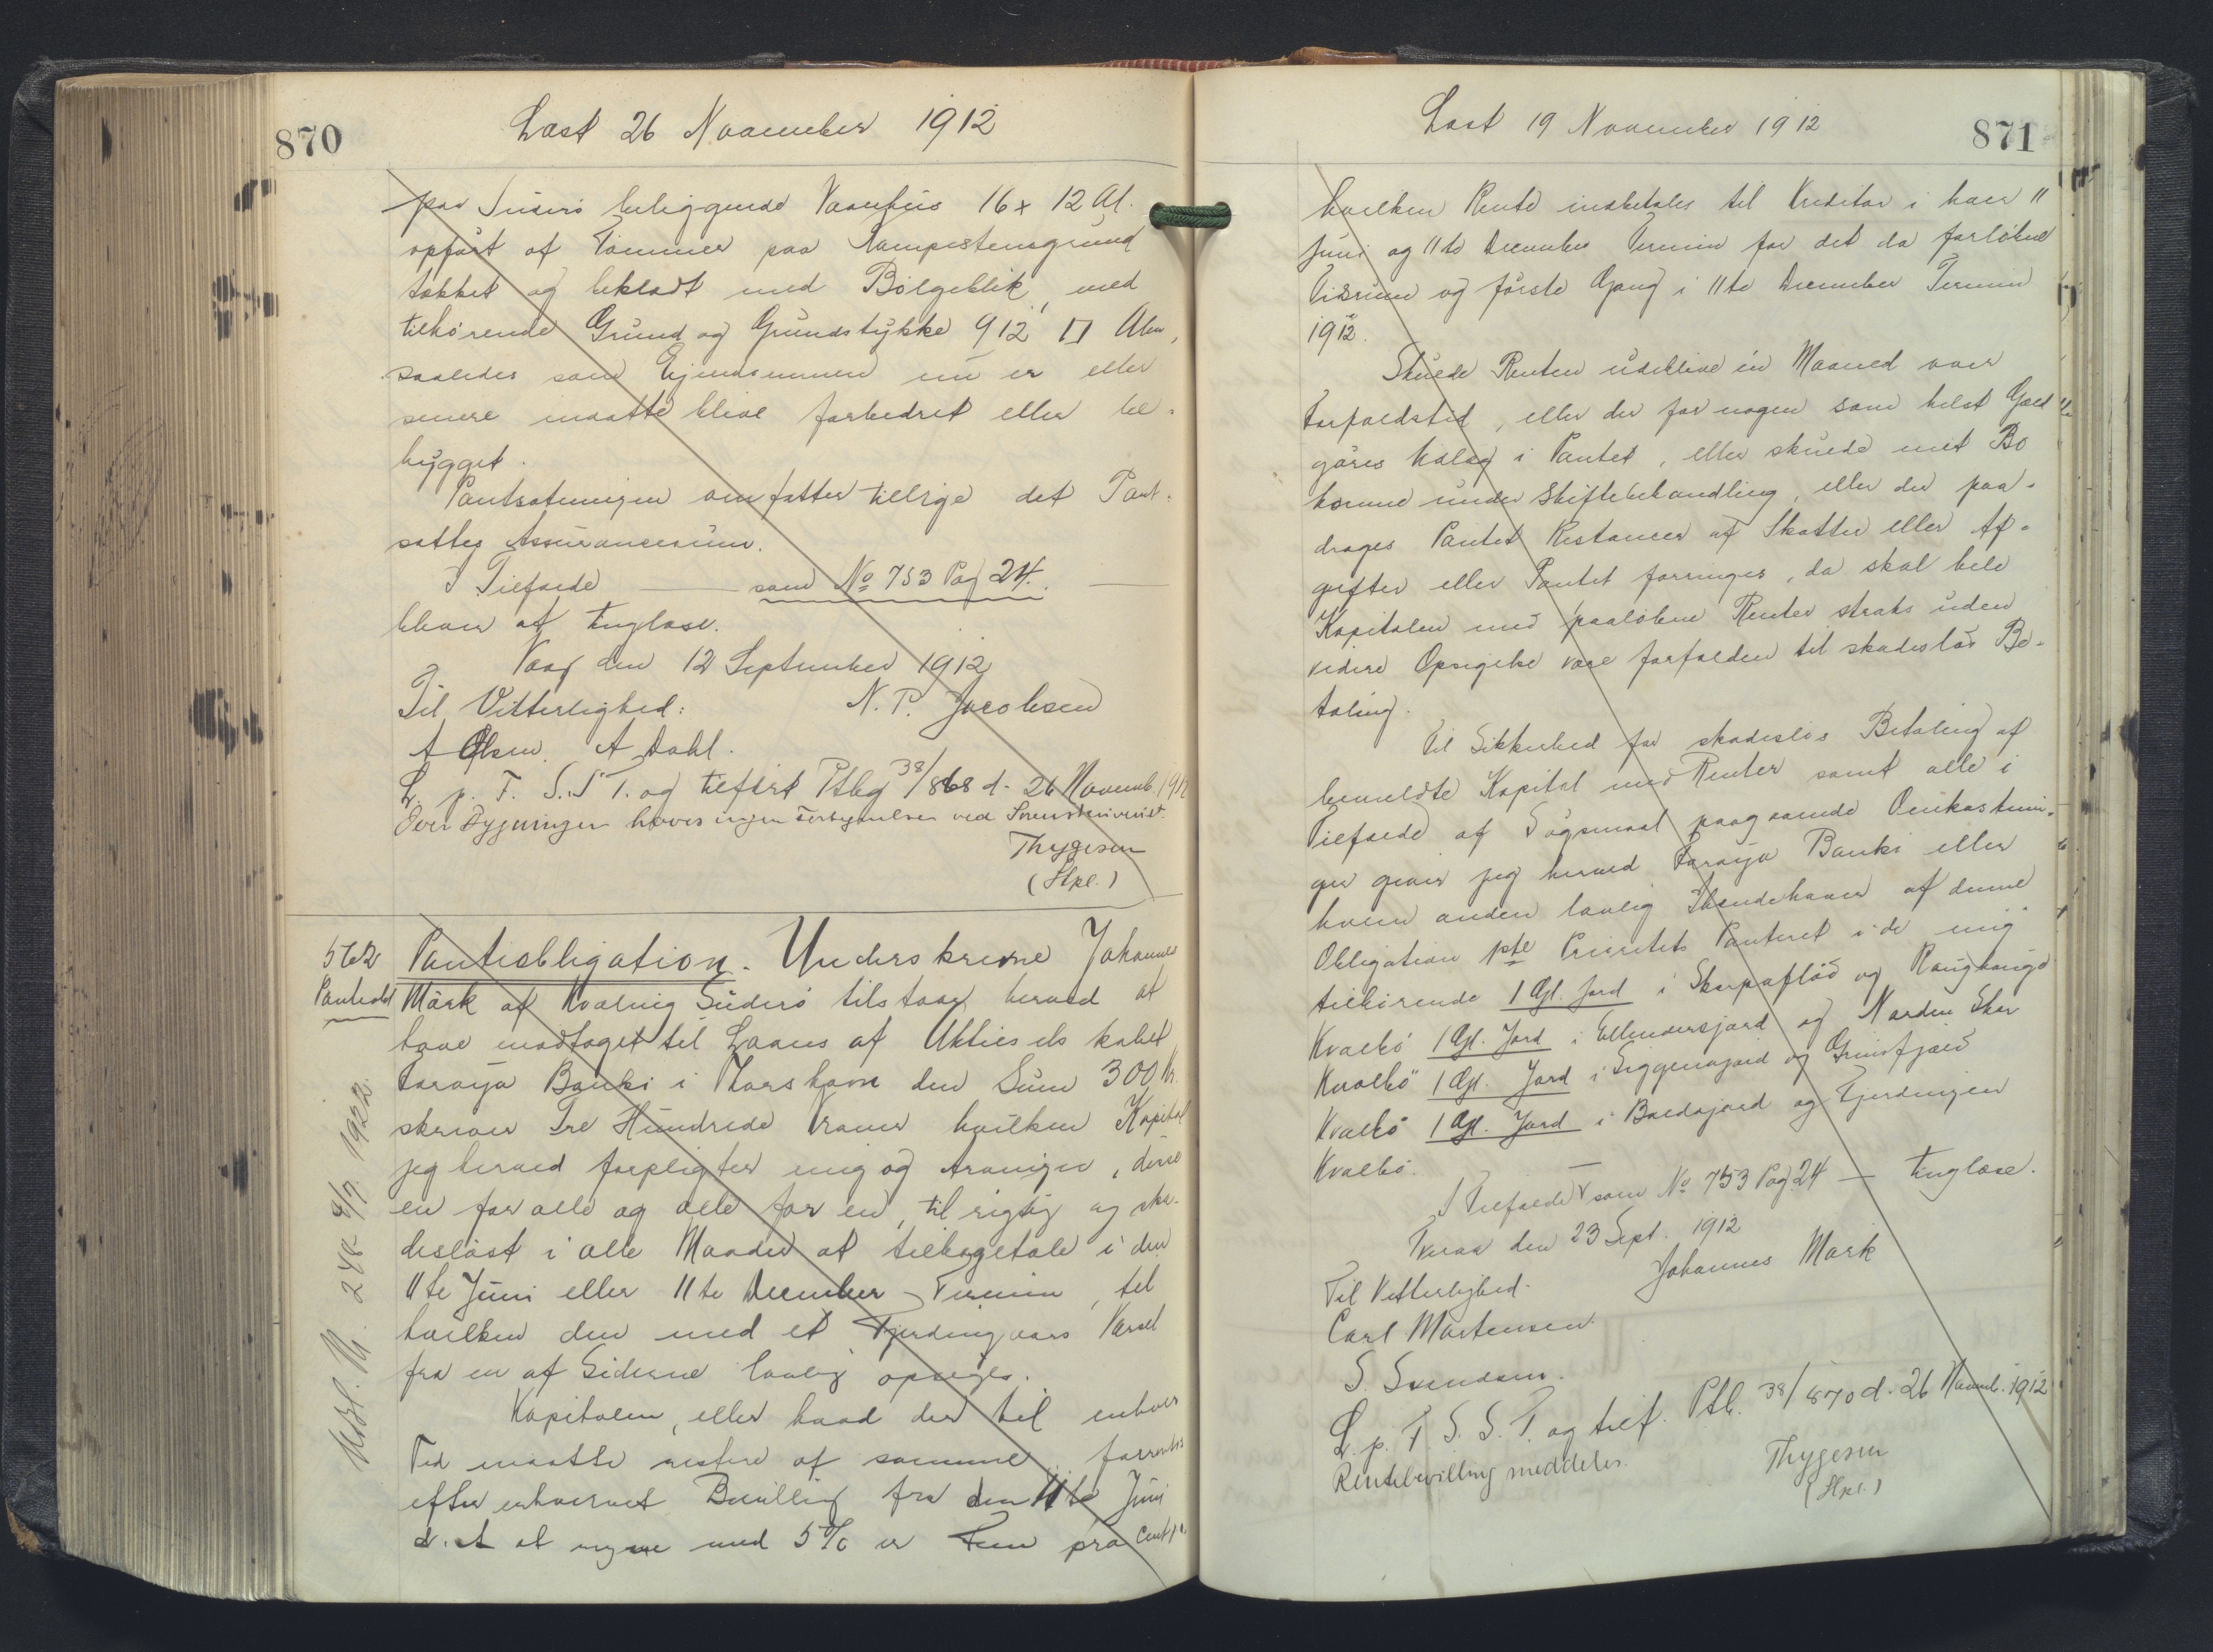 870
Læst 26 November 1912
paa Suderö beliggende Vaanhus 16 x 12 Al.
opført af Tømmer paa Kampestensgrund
tækket og beklædt med Bölgeblik, med
tilhörende Grund og Grundstykke 912 □ Alen,
saaledes som Ejendommen nu er eller
senere maatte blive forbedret eller be-
bygget.
Pantsætningen omfatter tillige det Pant-
sattes Assurancesum.
I Tilfælde — som No 753 Pag 24. —
bliver at tinglæse.
Vaag den 12 September 1912
Til Vitterlighed: N. P. Jacobsen
A Olsen. A Dahl.
L. p. F. S. S T. og tilført Ptbg 38/868 d. 26 Novemb. 1912
Over Bygninger haves ingen Forsynelser ved Sorenskriveriet.
Thygesen
(Hpl.)
562 Pantiobligation. Underskrevne Johannes
Panteobl Mörk af Hvalvig Süderö tilstaar herved at
have modtaget til Laans af Aktieselskabet
Føroya Banki i Thorshavn den Sum 300 Kr.
skriver Tre Hundrede Kroner hvilken Kapital
jeg herved forpligter mig og Arvinger, disse
en for alle og alle for en, til rigtig og ska-
deslöst i alle Maader at tilbagetale i den
11te Juni eller 11te December Termin, til
hvilken den med et Fjerdingaars Varsel
fra en af Siderne lovlig opsiges.
Kapitalen, eller hvad der til enhver
Tid maatte restere af samme, forrentes
efter erhvervet Bevilling fra den 11te Juni
d. A at regne med 5 % er Fem pro Cent p. a.
Udsl. M. 248 4/7 1922.
Læst 19 November 1912
871
hvilken Rente indbetales til Kreditor i hver 11
Juni og 11te December Termin for det da forløbne
Tidsrum og første Gang i 11te December Termin
1912.
Skulde Renten udeblive én Maaned over
Forfaldstid, eller der for nogen som helst Gæld
göres Udlæg i Pantet, eller skulde mit Bo
komme under Skiftebehandling, eller der paa-
drages Pantet Restancer af Skatter eller Af-
gifter eller Pantet forringes, da skal hele
Kapitalen med paalöbne Renter straks uden
videre Opsigelse være forfalden til skadeslös Be-
taling.
Til Sikkerhed for skadeslös Betaling af
bemeldte Kapital med Renter samt alle i
Tilfælde af Sögsmaal paagaaende Omkostnin-
ger giver jeg herved Føroya Banki eller
hvem anden lovlig Ihændehaver af denne
Obligation 1ste Prioritets Panteret i de mig
tilhörende 1 Gl. Jord i Skarpaflöd og Raughangö
Kvalbö 1 Gl. Jord i Ellendersjord og Norden Skor
Kvalbö 1 Gl. Jord i Siggenajord og Grimsfjæld
Kvalbö 1 Gl. Jord i Boedojord og Fjerdingen
Kvalbö.
I Tilfælde — som No 753 Pag. 24 — tinglæse.
Tveraa den 23 Sept. 1912
Johannes Mörk
Til Vitterlighed.
Carl Mortensen.
S. Svendsen.
L. p. F. S. S. T. og tilf. Ptb. 38/870 d. 26 Novemb. 1912
Rentebevilling meddeles.
Thygesen
(Hpl.)